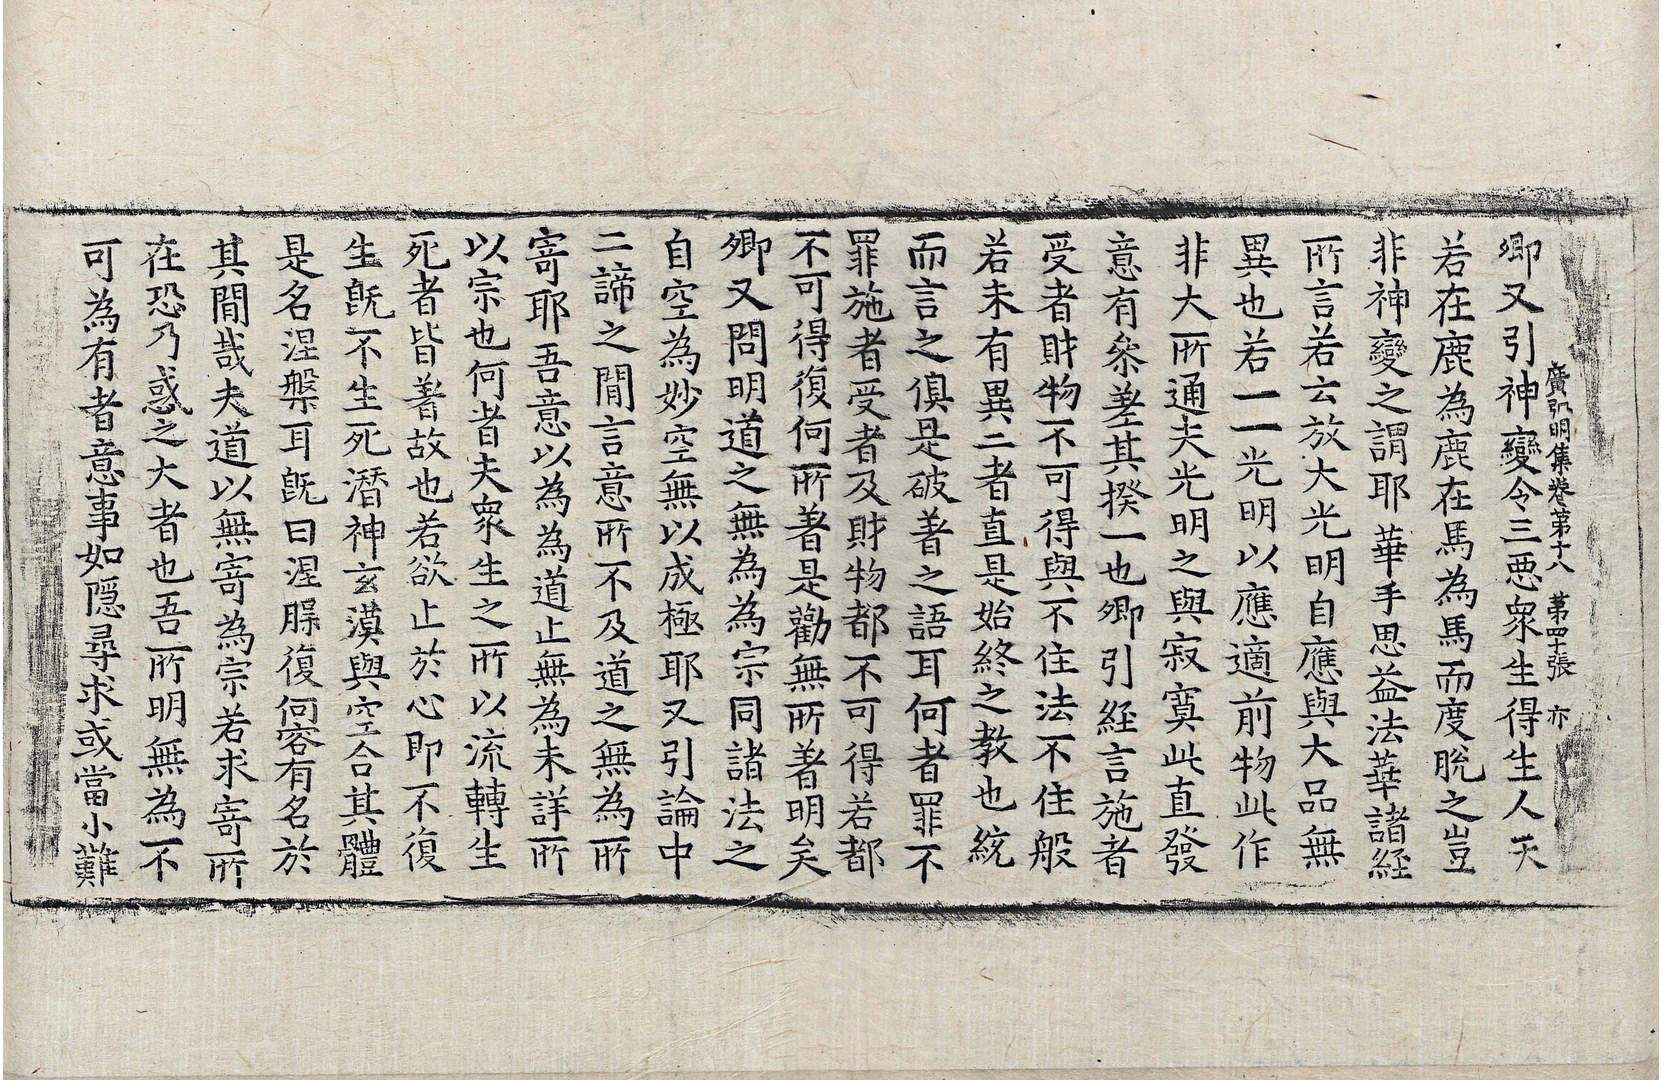 廣弘明集卷第十八　第四十張　亦
卿又引神變令三惡衆生得生人天
若在鹿為鹿在馬為馬而度脫之豈
非神變之謂耶華手思益法華諸經
所言若云放大光明自應與大品無
異也若一一光明以應適前物此作
非大所通夫光明之與寂寞此直發
意有叅差其揆一也卿引經言施者
受者財物不可得與不住法不住般
若未有異二者直是始終之教也統
而言之俱是破著之語耳何者罪不
罪施者受者及財物都不可得若都
不可得復何所著是勸無所著明矣
卿又問明道之無為為宗同諸法之
自空為妙空無以成極耶又引論中
二諦之間言意所不及道之無為所
寄耶吾意以為為道止無為未詳所
以宗也何者夫衆生之所以流轉生
死者皆著故也若欲止於心即不復
生旣不生死潛神玄漠與空合其體
是名涅槃耳旣曰涅槃復何容有名於
其間哉夫道以無寄為宗若求寄所
在恐乃惑之大者也吾所明無為不
可為有者意事如隱尋求或當小難